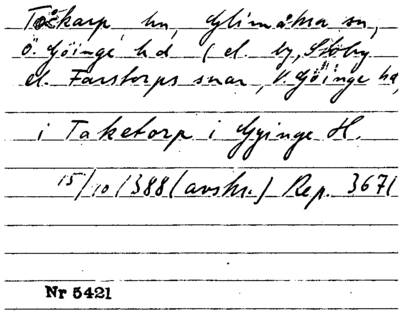 Tåkarp, hn, Glimåkra sn,
Ö. Göinge hd (el. by, Stoby
el. Farstorps snar, V. Göinge hd,
i Taketorp i Gyinge H.
15/10 1388 (avskr.) Rep. 3671
Nr 5421